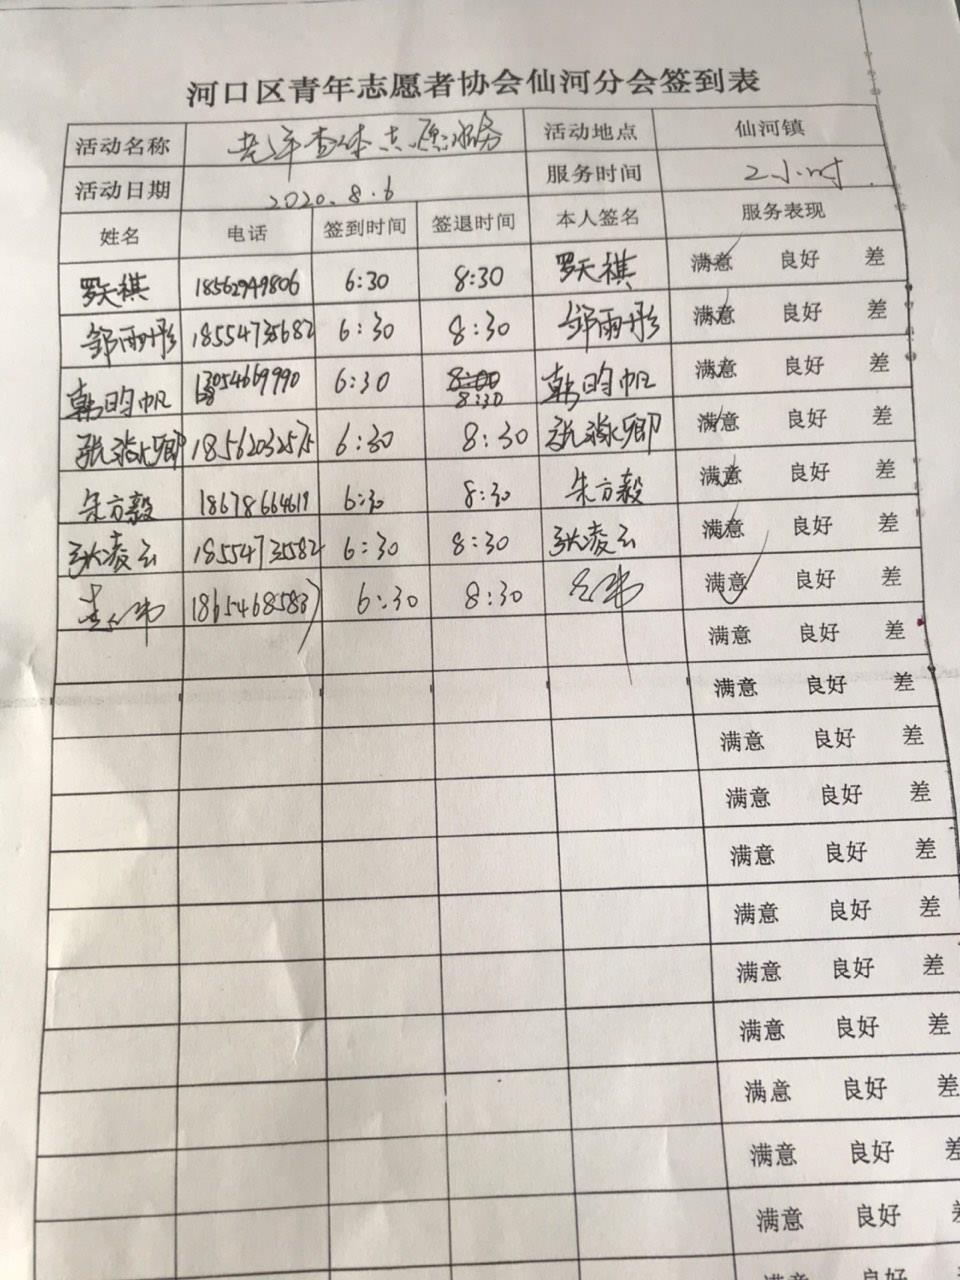 河口区青年志愿者协会仙河分会签到表
活动名称 老年查体志愿服务 活动地点 仙河镇
活动日期 2020.8.6 服务时间 2小时
姓名 电话 签到时间 签退时间 本人签名 服务表现
罗天祺 18562949806 6:30 8:30 罗天祺 满意 良好 差
邹雨彤 18554735682 6:30 8:30 邹雨彤 满意 良好 差
韩昀帆 13054669990 6:30 8:30 韩昀帆 满意 良好 差
张 卿 6:30 8:30 张 卿 满意 良好 差
朱方毅 18678664619 6:30 8:30 朱方毅 满意 良好 差
张凌云 18554735582 6:30 8:30 张凌云 满意 良好 差
18654685837 6:30 8:30 满意 良好 差
满意 良好 差
满意 良好 差
满意 良好 差
满意 良好 差
满意 良好 差
满意 良好 差
满意 良好 差
满意 良好 差
满意 良好 差
满意 良好 差
满意 良好 差
满意 良好